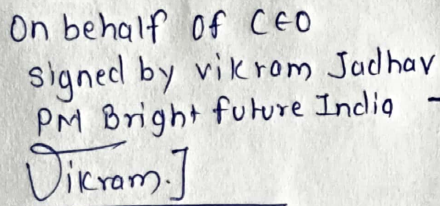 On behalf of CEO
signed by vikram Jadhav
PM Bright future India -
Vikram.J